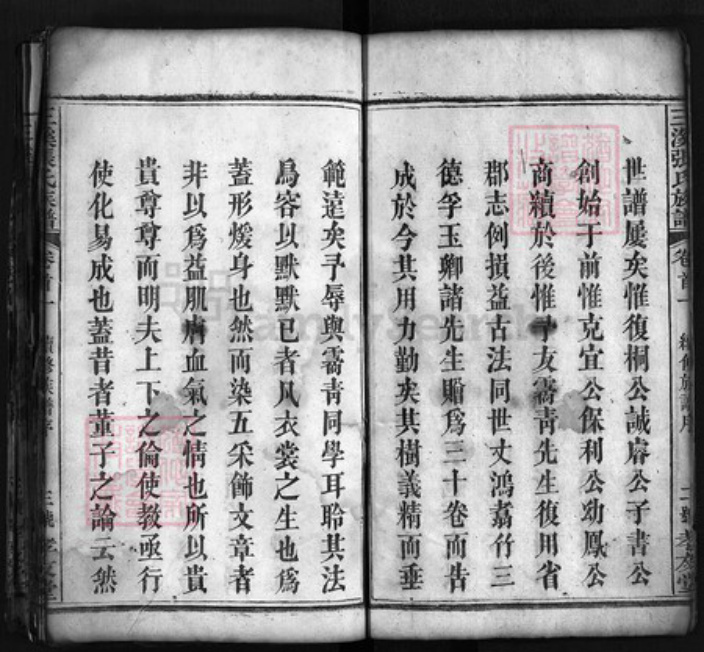 三溪張氏族譜 卷首一 續修族譜序 二號 孝友堂
世譜屢矣惟復桐公誠睿公子書公
創始于前惟克宜公保利公幼鳳公
商穎於後惟予友霱青先生復用省
郡志例損益古法同世丈鴻嘉竹三
德孚玉卿諸先生贈爲三十卷而告
成於今其用力勤矣其樹義精而垂
範遠矣予辱與霱青同學耳聆其法
爲容以默默已者凡衣裳之生也爲
蓋形煖身也然而染五采飾文章者
非以爲益肌膚血氣之情也所以貴
貴尊尊而明夫上下之倫使教亟行
使化易成也蓋昔者董子之論云然
三溪張氏族譜 卷首一 續修族譜序 三號 孝友堂
FamilySearch